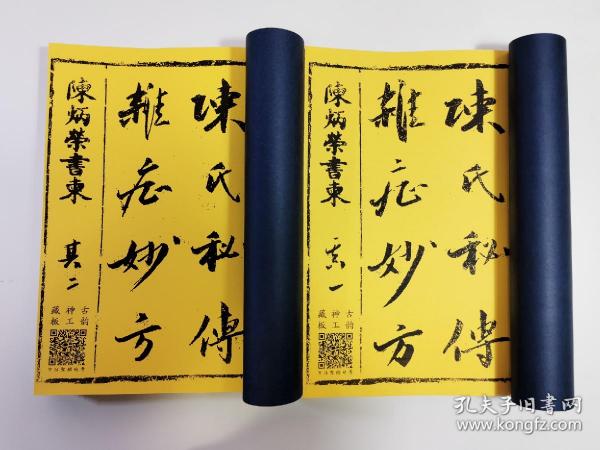 陳氏秘傳
雜症妙方
陳炳榮書柬 其二
古韵
神工
藏板
陳氏秘傳
雜症妙方
陳炳榮書柬 其一
古韵
神工
藏板
孔夫子旧书网
www.kongfz.com